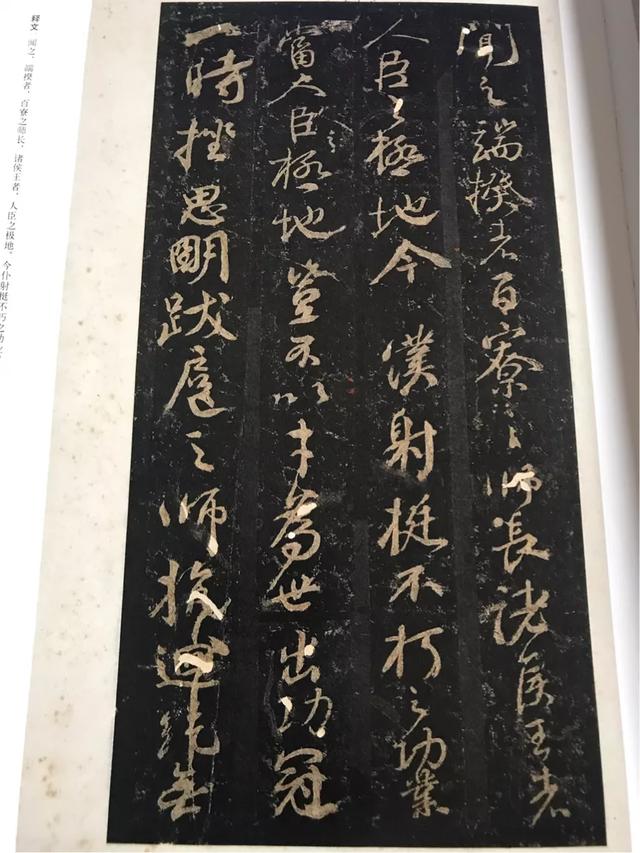 聞之端揆者百寮之師長諸侯王者
人臣之極地今僕射挺不朽之功業
當人臣之極地豈不以才為世出功冠
一時挫思明跋扈之師抗迴紇無
释文 闻之，端揆者，百寮之师长，诸侯王者，人臣之极地。今仆射挺不朽之功